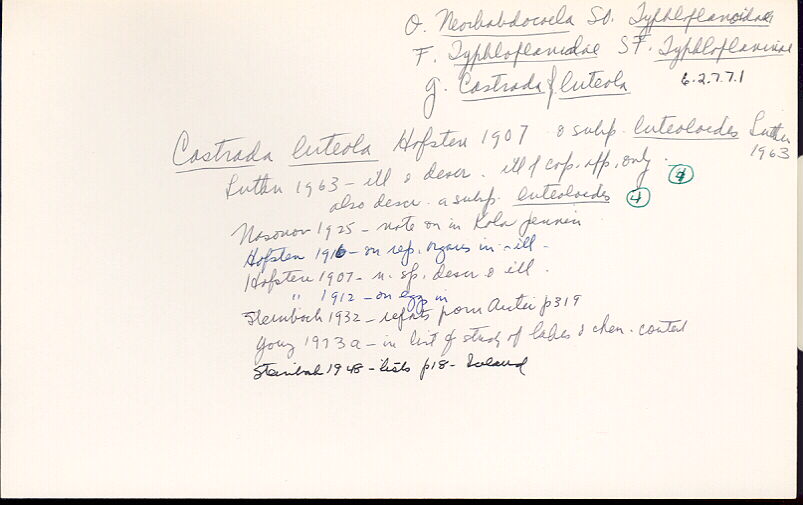 O. Neorhabdocoela SO. Typhloplanoidae
F. Typhloplanidae SF. Typhloplaninae
g. Castrada luteola 6.2.7.7.1
Castrada luteola Hofsten 1907 & subsp. luteoloides Luther
1963
Luther 1963 - ill & descr. ill of cop. app. only. 4
also descr. a subsp. luteoloides 4
Nasonov 1925 - note on in Kola
Hofsten 1916 - on rep. organs in - ill -
Hofsten 1907 - n. sp. descr & ill.
" 1912 - on egg in
Steinböck 1932 - reports from p319
Young 1973a - in list of study of lakes & chem. content
Steinböck 1948 - lists p18 - Iceland